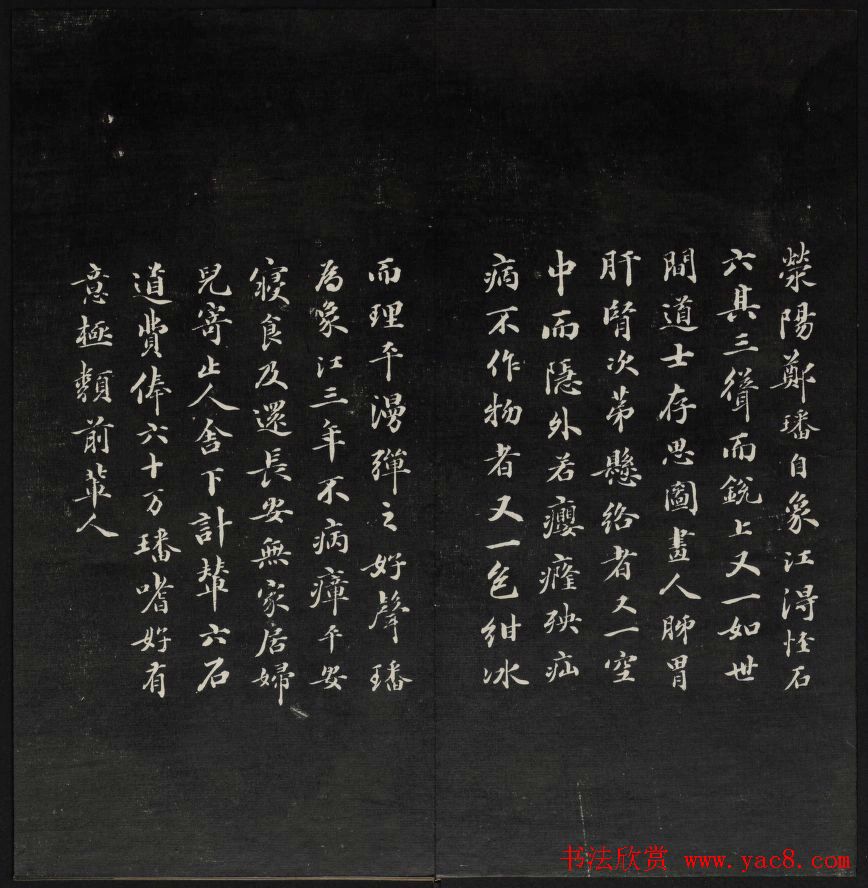 滎陽鄭璠自象江淂怪石
六其三聳而銳上又一如世
間道士存思圖畫人肺胃
肝腎次苐懸絡者又一空
中而隱外若癭癃殃疝
病不作物者又一色紺冰
而理平漫彈之好聲璠
為象江三年不病瘴平安
寢食及還長安無家居婦
兒寄止人舍下計輦六石
道費俸六十万璠嗜好有
意極類前輩人
书法欣赏 www.yac8.com